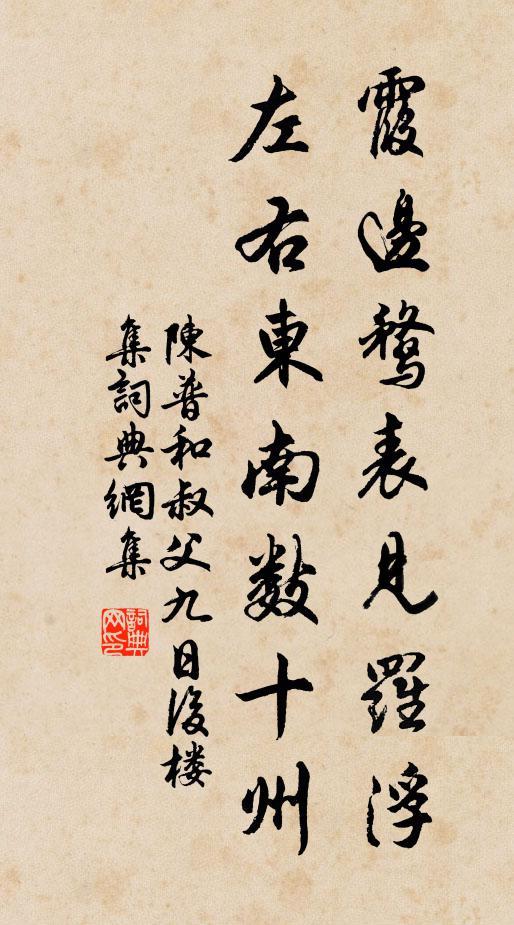 霞邊鶩表見羅浮
左右東南數十州
陳普和叔父九日後楼
集詞典網集
詞典網印